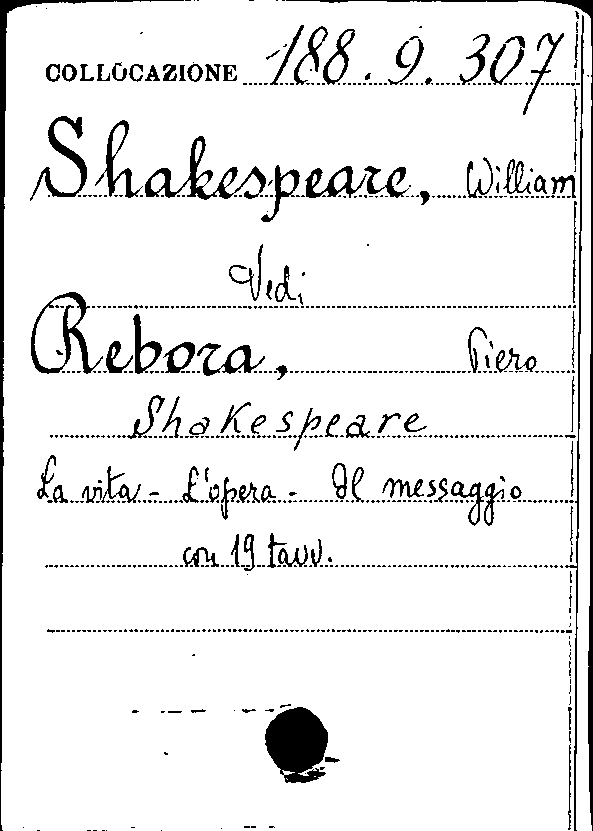 COLLOCAZIONE 188.9.307
Shakespeare, William
Vedi
Rebora, Piero
Shakespeare
La vita - L'opera - Il messaggio
con 19 tavv.